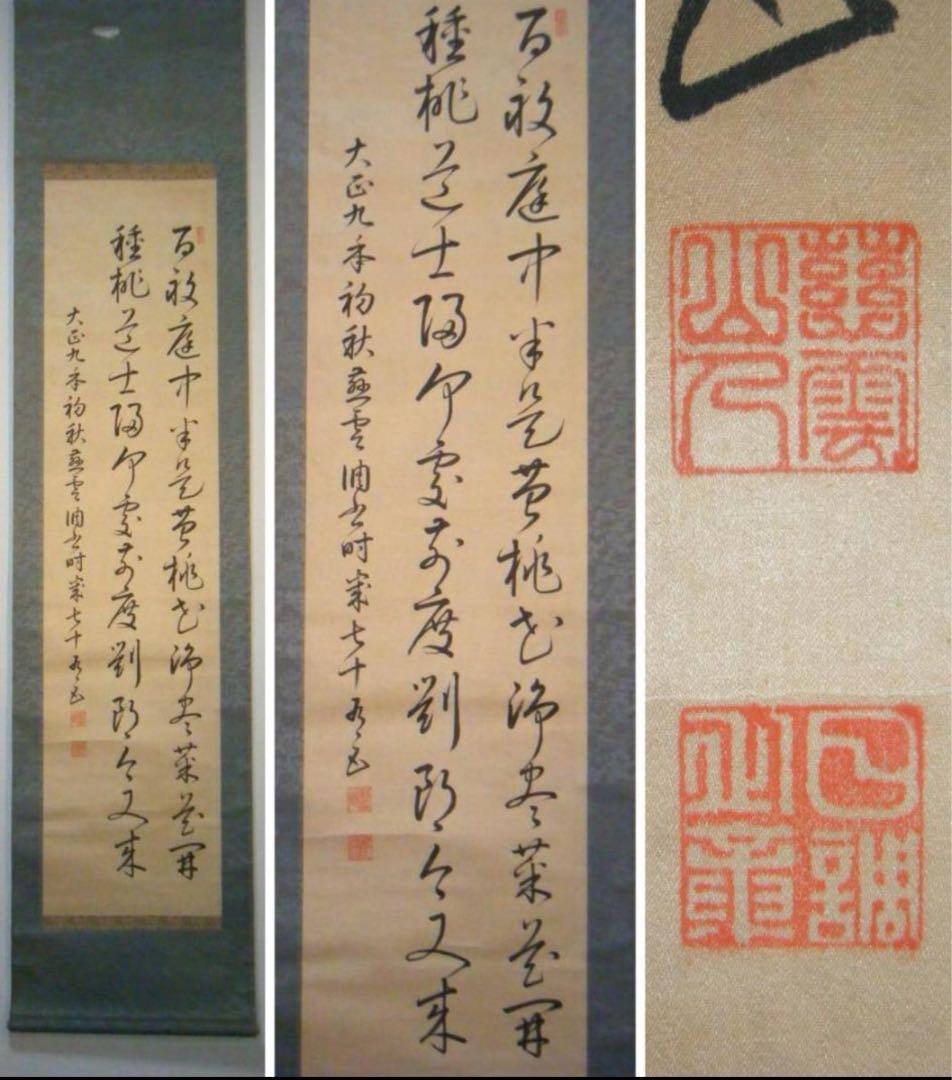 百畝庭中半是苔桃花淨盡菜花開
種桃道士歸何處前度劉郎今又来
大正九年初秋慈雲書時歳七十有五
百畝庭中半是苔桃花淨盡菜花開
種桃道士歸何處前度劉郎今又来
大正九年初秋慈雲書時歳七十有五
慈雲山人
已講之章